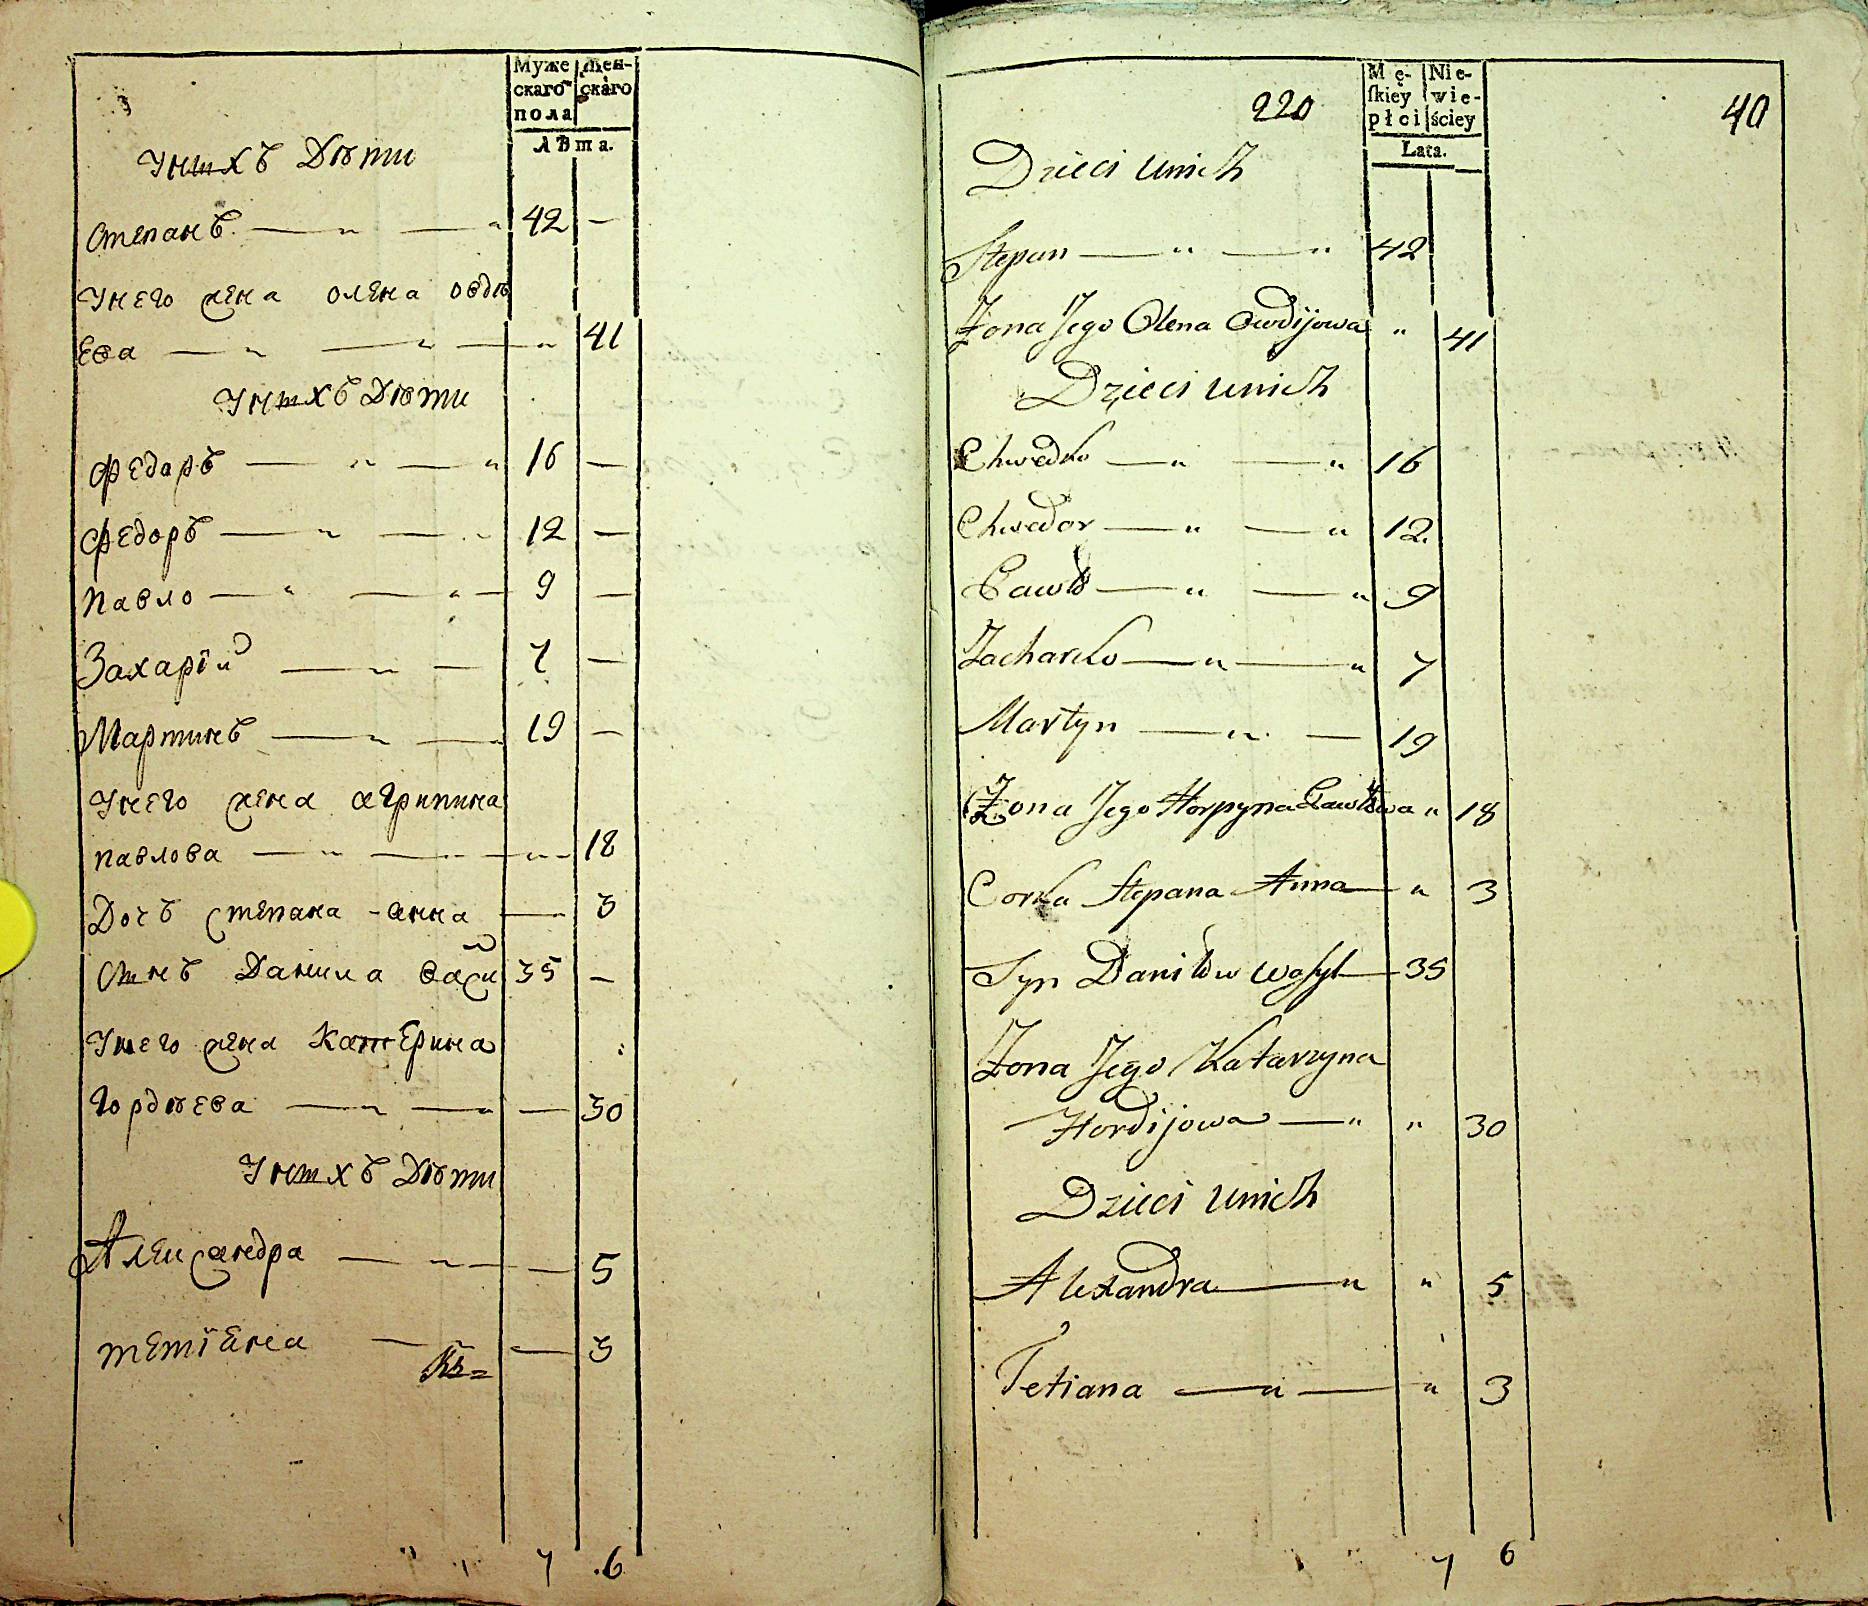 Муже
скаго
пола
Жен-
скаго
Лѣта.
Унихъ Дѣти
Степанъ — „ — „ 42 —
Унего жена олена овдѣ
Ева — „ — „ — „ 41
Унихъ Дѣти
Федаръ — „ — „ 16 —
Федоръ — „ — „ 12 —
Павло — „ — „ — 9 —
Захарїй — „ — 7 —
Мартинъ — „ — 19 —
Унего жена агрипина
павлова — „ — „ — „ 18
Дочъ степана анна — 3
Синъ Данила васи 35 —
Унего жена Катерина
Гордѣева — „ — „ — 30
Унихъ Дѣти
Александра — „ — — 5
тетїана — — 3
7 6
220
40
Mę-
ſkiey
płci
Nie-
wie-
ściey
Lata.
Dzieci unich
Stepan — „ — „ 42
Żona Jego Olena Owdijowa „ 41
Dzieci unich
Chwedko — „ — „ 16
Chwedor — „ — „ 12
Pawło — „ — „ 9
Zacharko — „ — „ 7
Martyn — „ — 19
Żona Jego Horpyna Pawłowa „ 18
Corka Stepana Anna — „ 3
Syn Daniłow Waſyl — 35
Żona Jego Katarzyna
Hordijowa — „ „ 30
Dzieci unich
Alexandra — „ „ 5
Tetiana — „ — „ 3
7 6